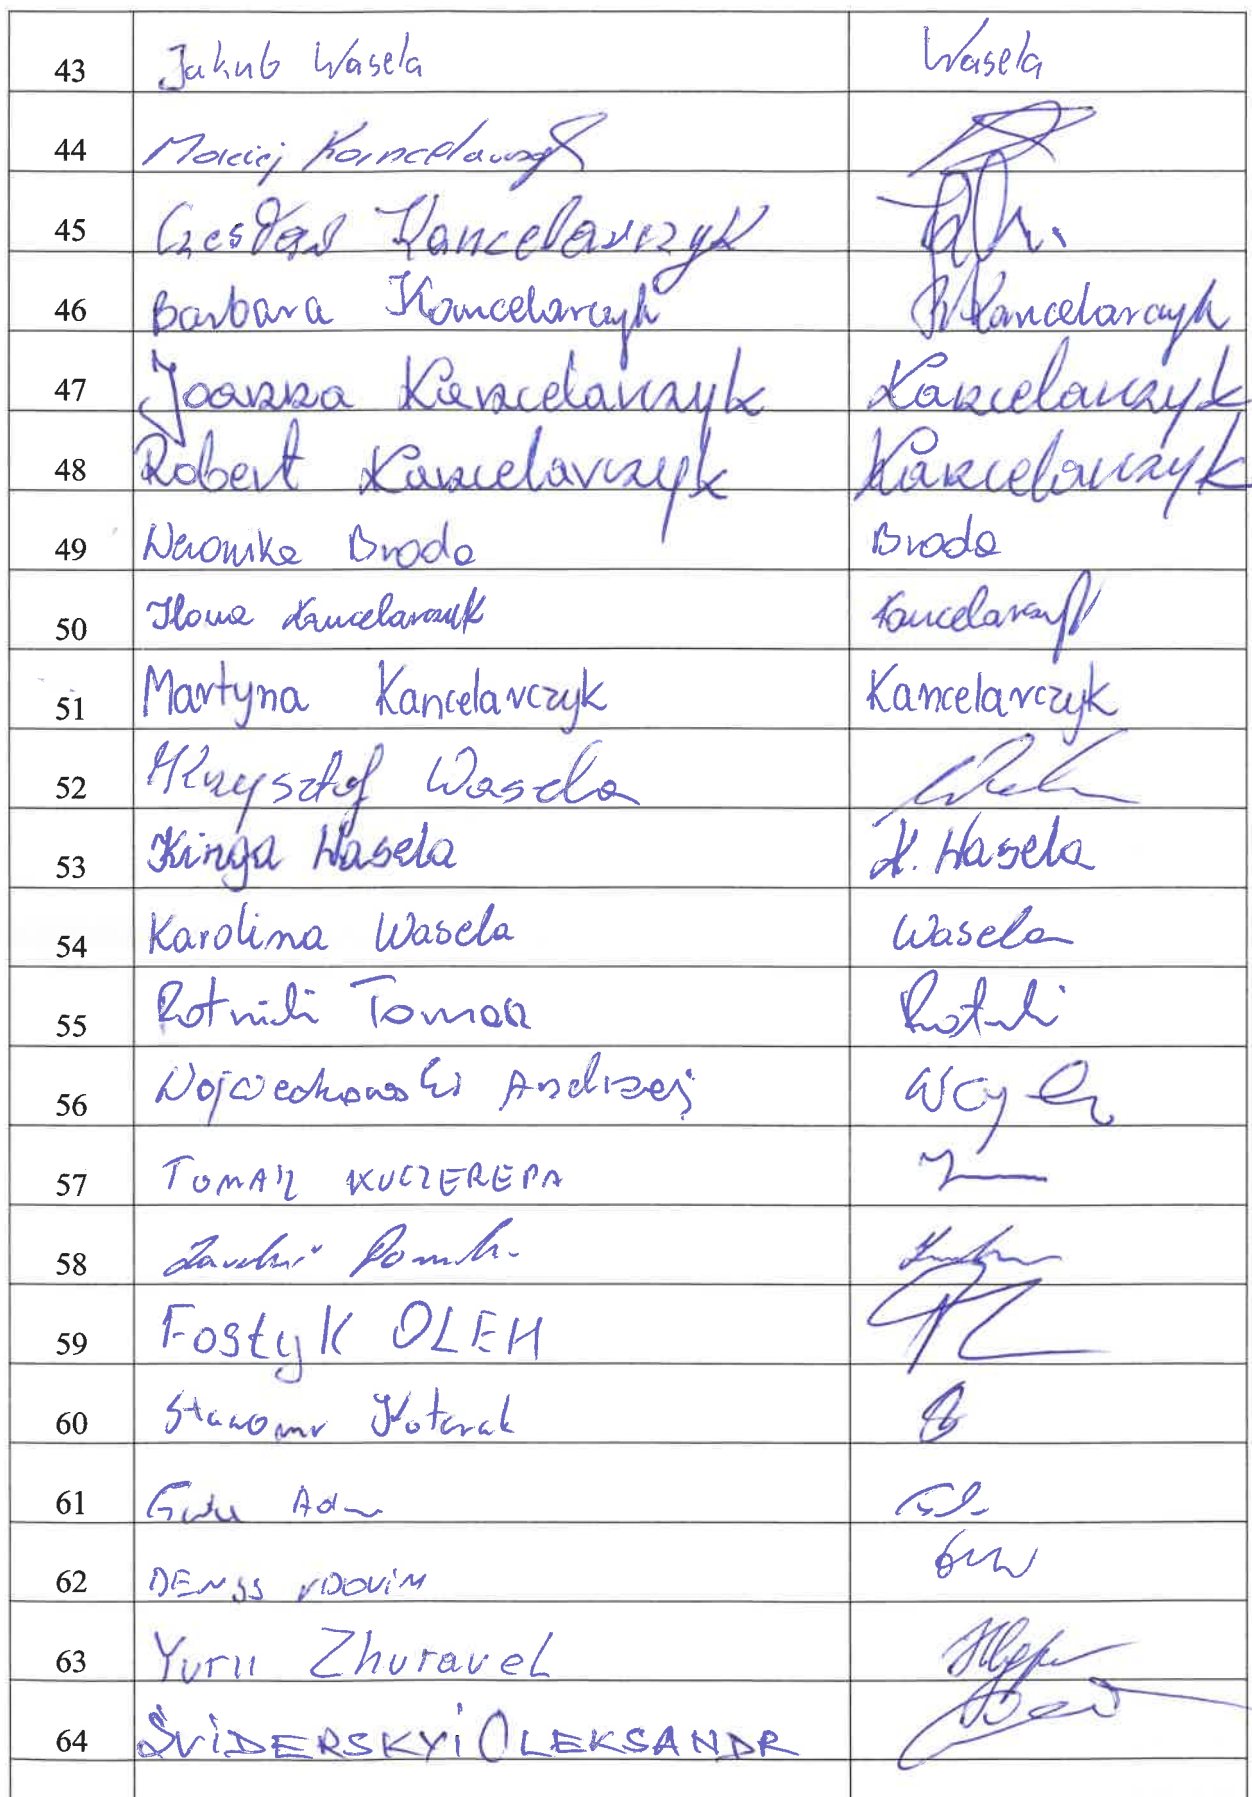 43 Jakub Wasela Wasela
44 Maciej Kancelarczyk
45 Czesław Kancelarczyk
46 Barbara Kancelarczyk Kancelarczyk
47 Joanna Kancelarczyk Kancelarczyk
48 Robert Kancelarczyk Kancelarczyk
49 Weronika Broda Broda
50 Ilona Kancelarczyk Kancelarczyk
51 Martyna Kancelarczyk Kancelarczyk
52 Krzysztof Wasela
53 Kinga Wasela K. Wasela
54 Karolina Wasela Wasela
55 Rotnicki Tomasz
56 Wojciechowski Andrzej
57 TOMASZ KUCZEREPA
58
59 Fostyk OLEH
60 Sławomir Kotarak
61 Adam
62 DENYS VDOVIN
63 Yurii Zhuravel
64 SViDERSKYi OLEKSANDR